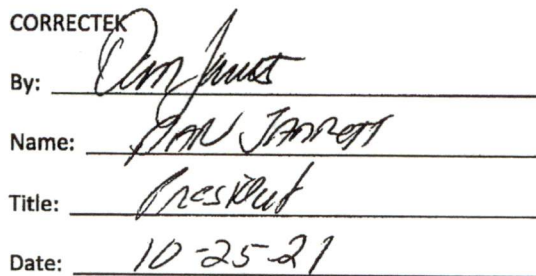 CORRECTEK
By: 
Name: Jarrett
Title: President
Date: 10-25-21